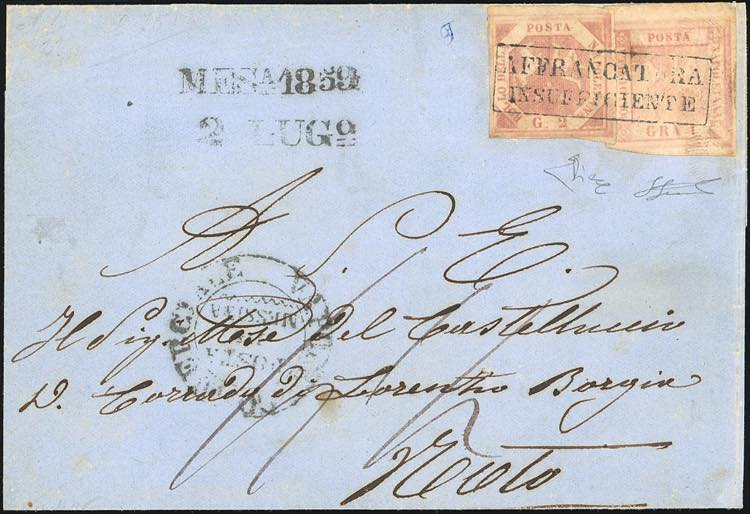 POSTA POSTA
AFFRANCATURA
INSUFFICIENTE
G. 2 GRA 1
MESA 1859
2 LUGº
A. S. E.
Il Sig. Mse del Castelluccio
D. Corrado di Lorenzo Borgia
Noto